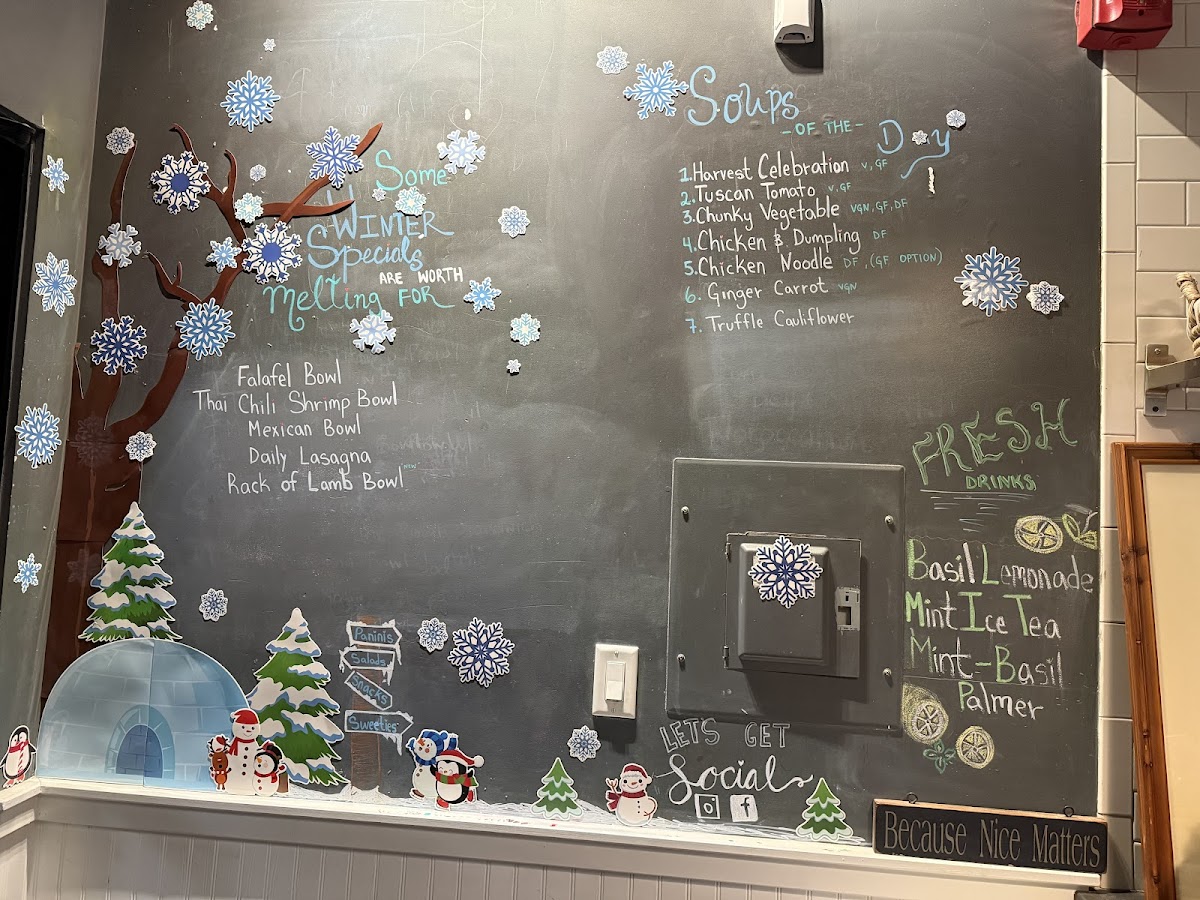 Some
Winter
Specials
ARE WORTH
Melting FOR
Falafel Bowl
Thai Chili Shrimp Bowl
Mexican Bowl
Daily Lasagna
Rack of Lamb Bowl NEW
Soups
-OF THE-
Day
1. Harvest Celebration V, GF
2. Tuscan Tomato V, GF
3. Chunky Vegetable VGN, GF, DF
4. Chicken & Dumpling DF
5. Chicken Noodle DF, (GF OPTION)
6. Ginger Carrot VGN
7. Truffle Cauliflower
FRESH
DRINKS
Basil Lemonade
Mint Ice Tea
Mint-Basil
Palmer
Paninis
Salads
Snacks
Sweeties
LET'S GET
Social
f
Because Nice Matters